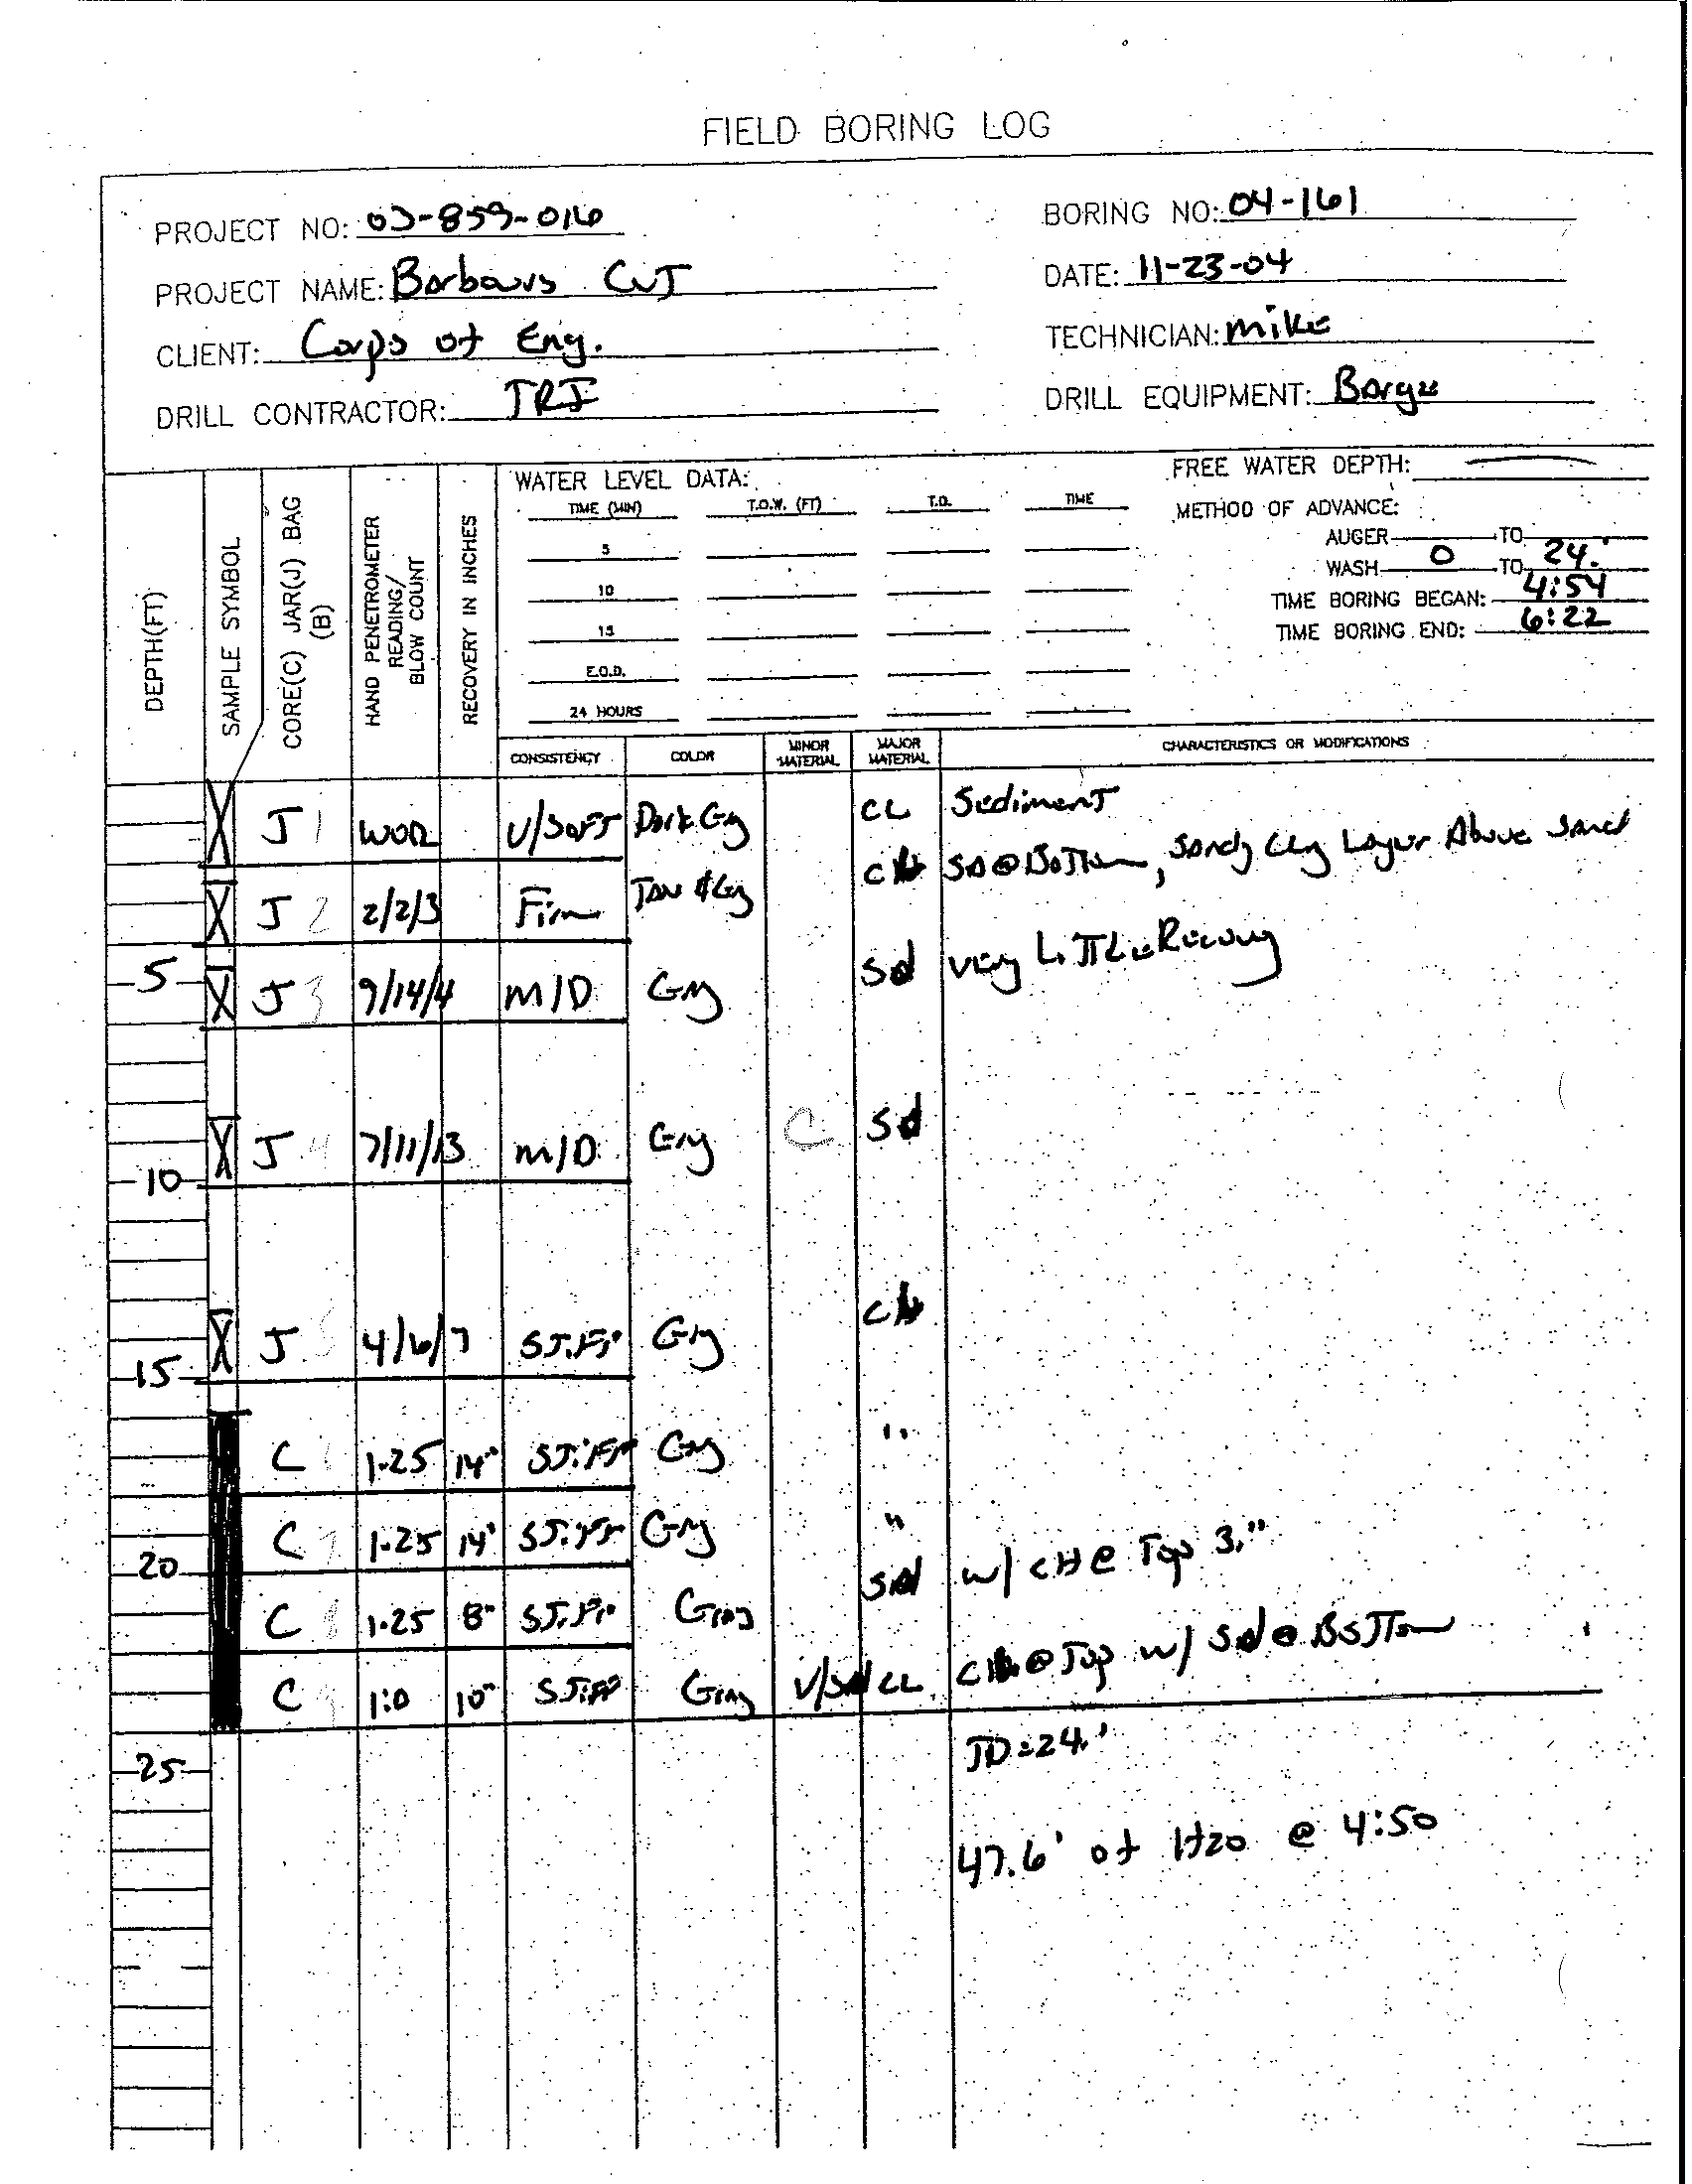 FIELD BORING LOG
PROJECT NO: 03-859-016
BORING NO: 04-161
PROJECT NAME: Barbours Cut
DATE: 11-23-04
CLIENT: Corps of Eng.
TECHNICIAN: Mike
DRILL CONTRACTOR: TRI
DRILL EQUIPMENT: Barge
DEPTH(FT)
SAMPLE SYMBOL
CORE(C) JAR(J) BAG (B)
HAND PENETROMETER READING/ BLOW COUNT
RECOVERY IN INCHES
WATER LEVEL DATA:
TIME (MIN) T.O.W. (FT) T.D. TIME
5
10
15
E.O.D.
24 HOURS
FREE WATER DEPTH:
METHOD OF ADVANCE:
AUGER TO
WASH 0 TO 24.'
TIME BORING BEGAN: 4:54
TIME BORING END: 6:22
CONSISTENCY COLOR MINOR MATERIAL MAJOR MATERIAL CHARACTERISTICS OR MODIFICATIONS
J 1 WOR V/Soft Dark Gry CL Sediment
J 2 2/2/3 Firm Tan & Gry SD @ Bottom, Sandy Cly Layer Above Sand
5 J 3 9/14/4 M/D Gry Sd Very Little Recovry
10 J 4 7/11/13 M/D Gry C Sd
15 J 4/6/7 Stiff Gry
C 1.25 14" Stiff Gry "
C 7 1.25 14" Stiff Gry "
20
C 8 1.25 8" Stiff Gray Sd w/ CH @ Top 3."
C 9 1.0 10" Stiff Gray CL @ Top w/ Sd @ Bottom
TD = 24.'
25
47.6' of H20 @ 4:50